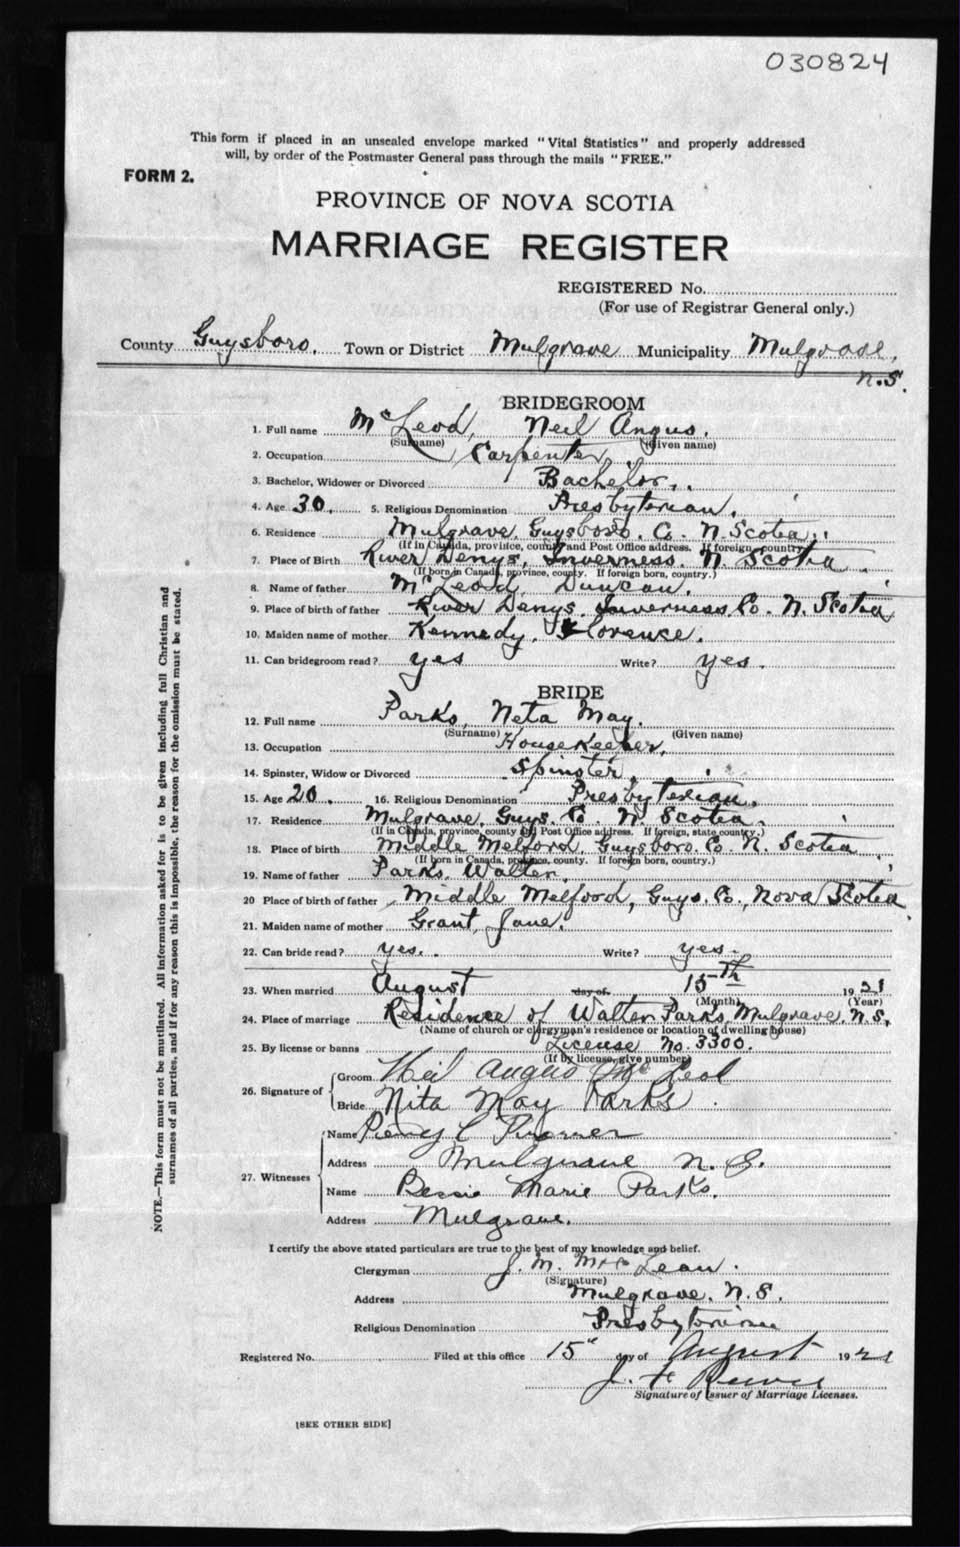 030824
This form if placed in an unsealed envelope marked "Vital Statistics" and properly addressed
will, by order of the Postmaster General pass through the mails "FREE."
FORM 2.
PROVINCE OF NOVA SCOTIA
MARRIAGE REGISTER
REGISTERED No.
(For use of Registrar General only.)
County Guysboro. Town or District Mulgrave Municipality Mulgrave,
N.S.
BRIDEGROOM
1. Full name McLeod, Neil Angus.
(Surname) (Given name)
2. Occupation Carpenter.
3. Bachelor, Widower or Divorced Bachelor.
4. Age 30. 5. Religious Denomination Presbyterian.
6. Residence Mulgrave, Guysboro. Co. N. Scotia.
(If in Canada, province, county and Post Office address. If foreign, country)
7. Place of Birth River Denys, Inverness. N. Scotia
(If born in Canada, province, county. If foreign born, country.)
8. Name of father McLeod, Duncan.
9. Place of birth of father River Denys Inverness Co. N. Scotia
10. Maiden name of mother Kennedy, Florence.
11. Can bridegroom read? yes Write? yes.
BRIDE
12. Full name Parks, Neta May.
(Surname) (Given name)
13. Occupation HouseKeeper.
14. Spinster, Widow or Divorced Spinster.
15. Age 20. 16. Religious Denomination Presbyterian.
17. Residence Mulgrave, Guys. Co. N. Scotia.
(If in Canada, province, county and Post Office address. If foreign, state country.)
18. Place of birth Middle Melford Guysboro. Co. N. Scotia
(If born in Canada, province, county. If foreign born, country.)
19. Name of father Parks, Walter.
20 Place of birth of father Middle Melford, Guys. Co., Nova Scotia
21. Maiden name of mother Grant, Jane.
22. Can bride read? yes. Write? yes.
23. When married August day of 15th 1921
(Month) (Year)
24. Place of marriage Residence of Walter Parks, Mulgrave. N.S.
(Name of church or clergyman's residence or location of dwelling house)
25. By license or banns License No. 3300.
(If by license, give number)
26. Signature of
Groom Neil Angus McLeod
Bride Nita May Parks
27. Witnesses
Name Percy C
Address Mulgrave N. S.
Name Bessie Marie Parks.
Address Mulgrave.
I certify the above stated particulars are true to the best of my knowledge and belief.
Clergyman J. M. McLean.
(Signature)
Address Mulgrave. N.S.
Religious Denomination Presbyterian
Registered No. Filed at this office 15" day of August 1921
J. F.
Signature of Issuer of Marriage Licenses.
[SEE OTHER SIDE]
NOTE.—This form must not be mutilated. All information asked for is to be given including full Christian and
surnames of all parties, and if for any reason this is impossible, the reason for the omission must be stated.